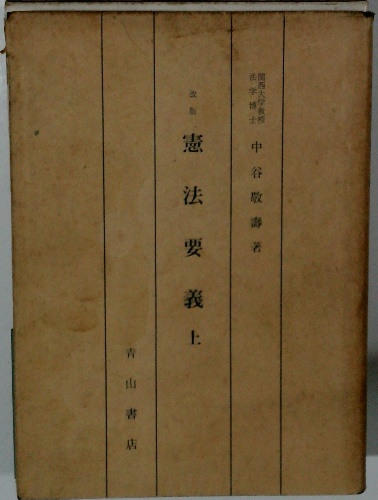 関西大学教授
法学博士
中谷敬壽著
改版
憲法要義上
青山書店